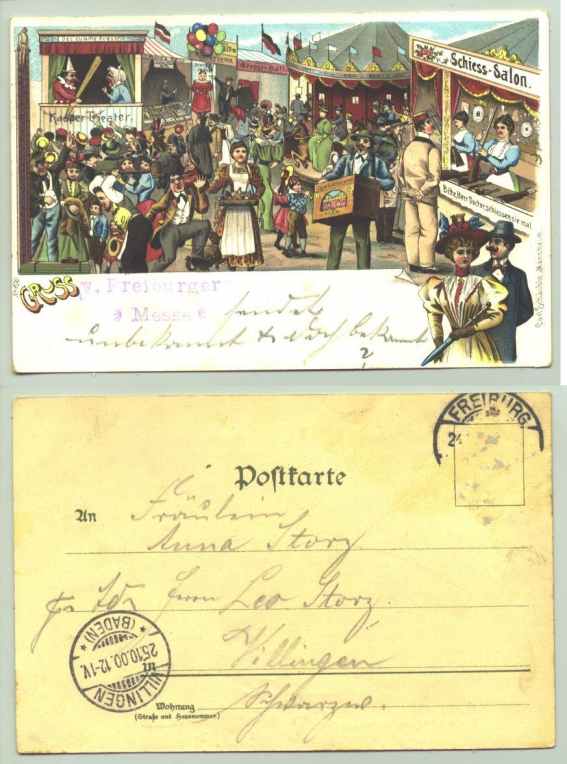 Kasper-Theater.
Schiess-Salon.
Bitte, Herr Doctor schiessen sie mal
Gruss
v. Freiburger
* Messe *
sendet
unbekannt & doch bekannt
?
FREIBURG
24
Postkarte
An Fräulein
Anna Storz
Adr Herrn Leo Storz.
in Villingen
Wohnung Schwarzw.
(Straße und Hausnummer)
VILLINGEN
25.10.00.12-1V.
* (BADEN) *